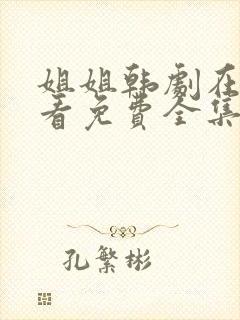 姐姐韩劇在
看免費全集
孔繁彬